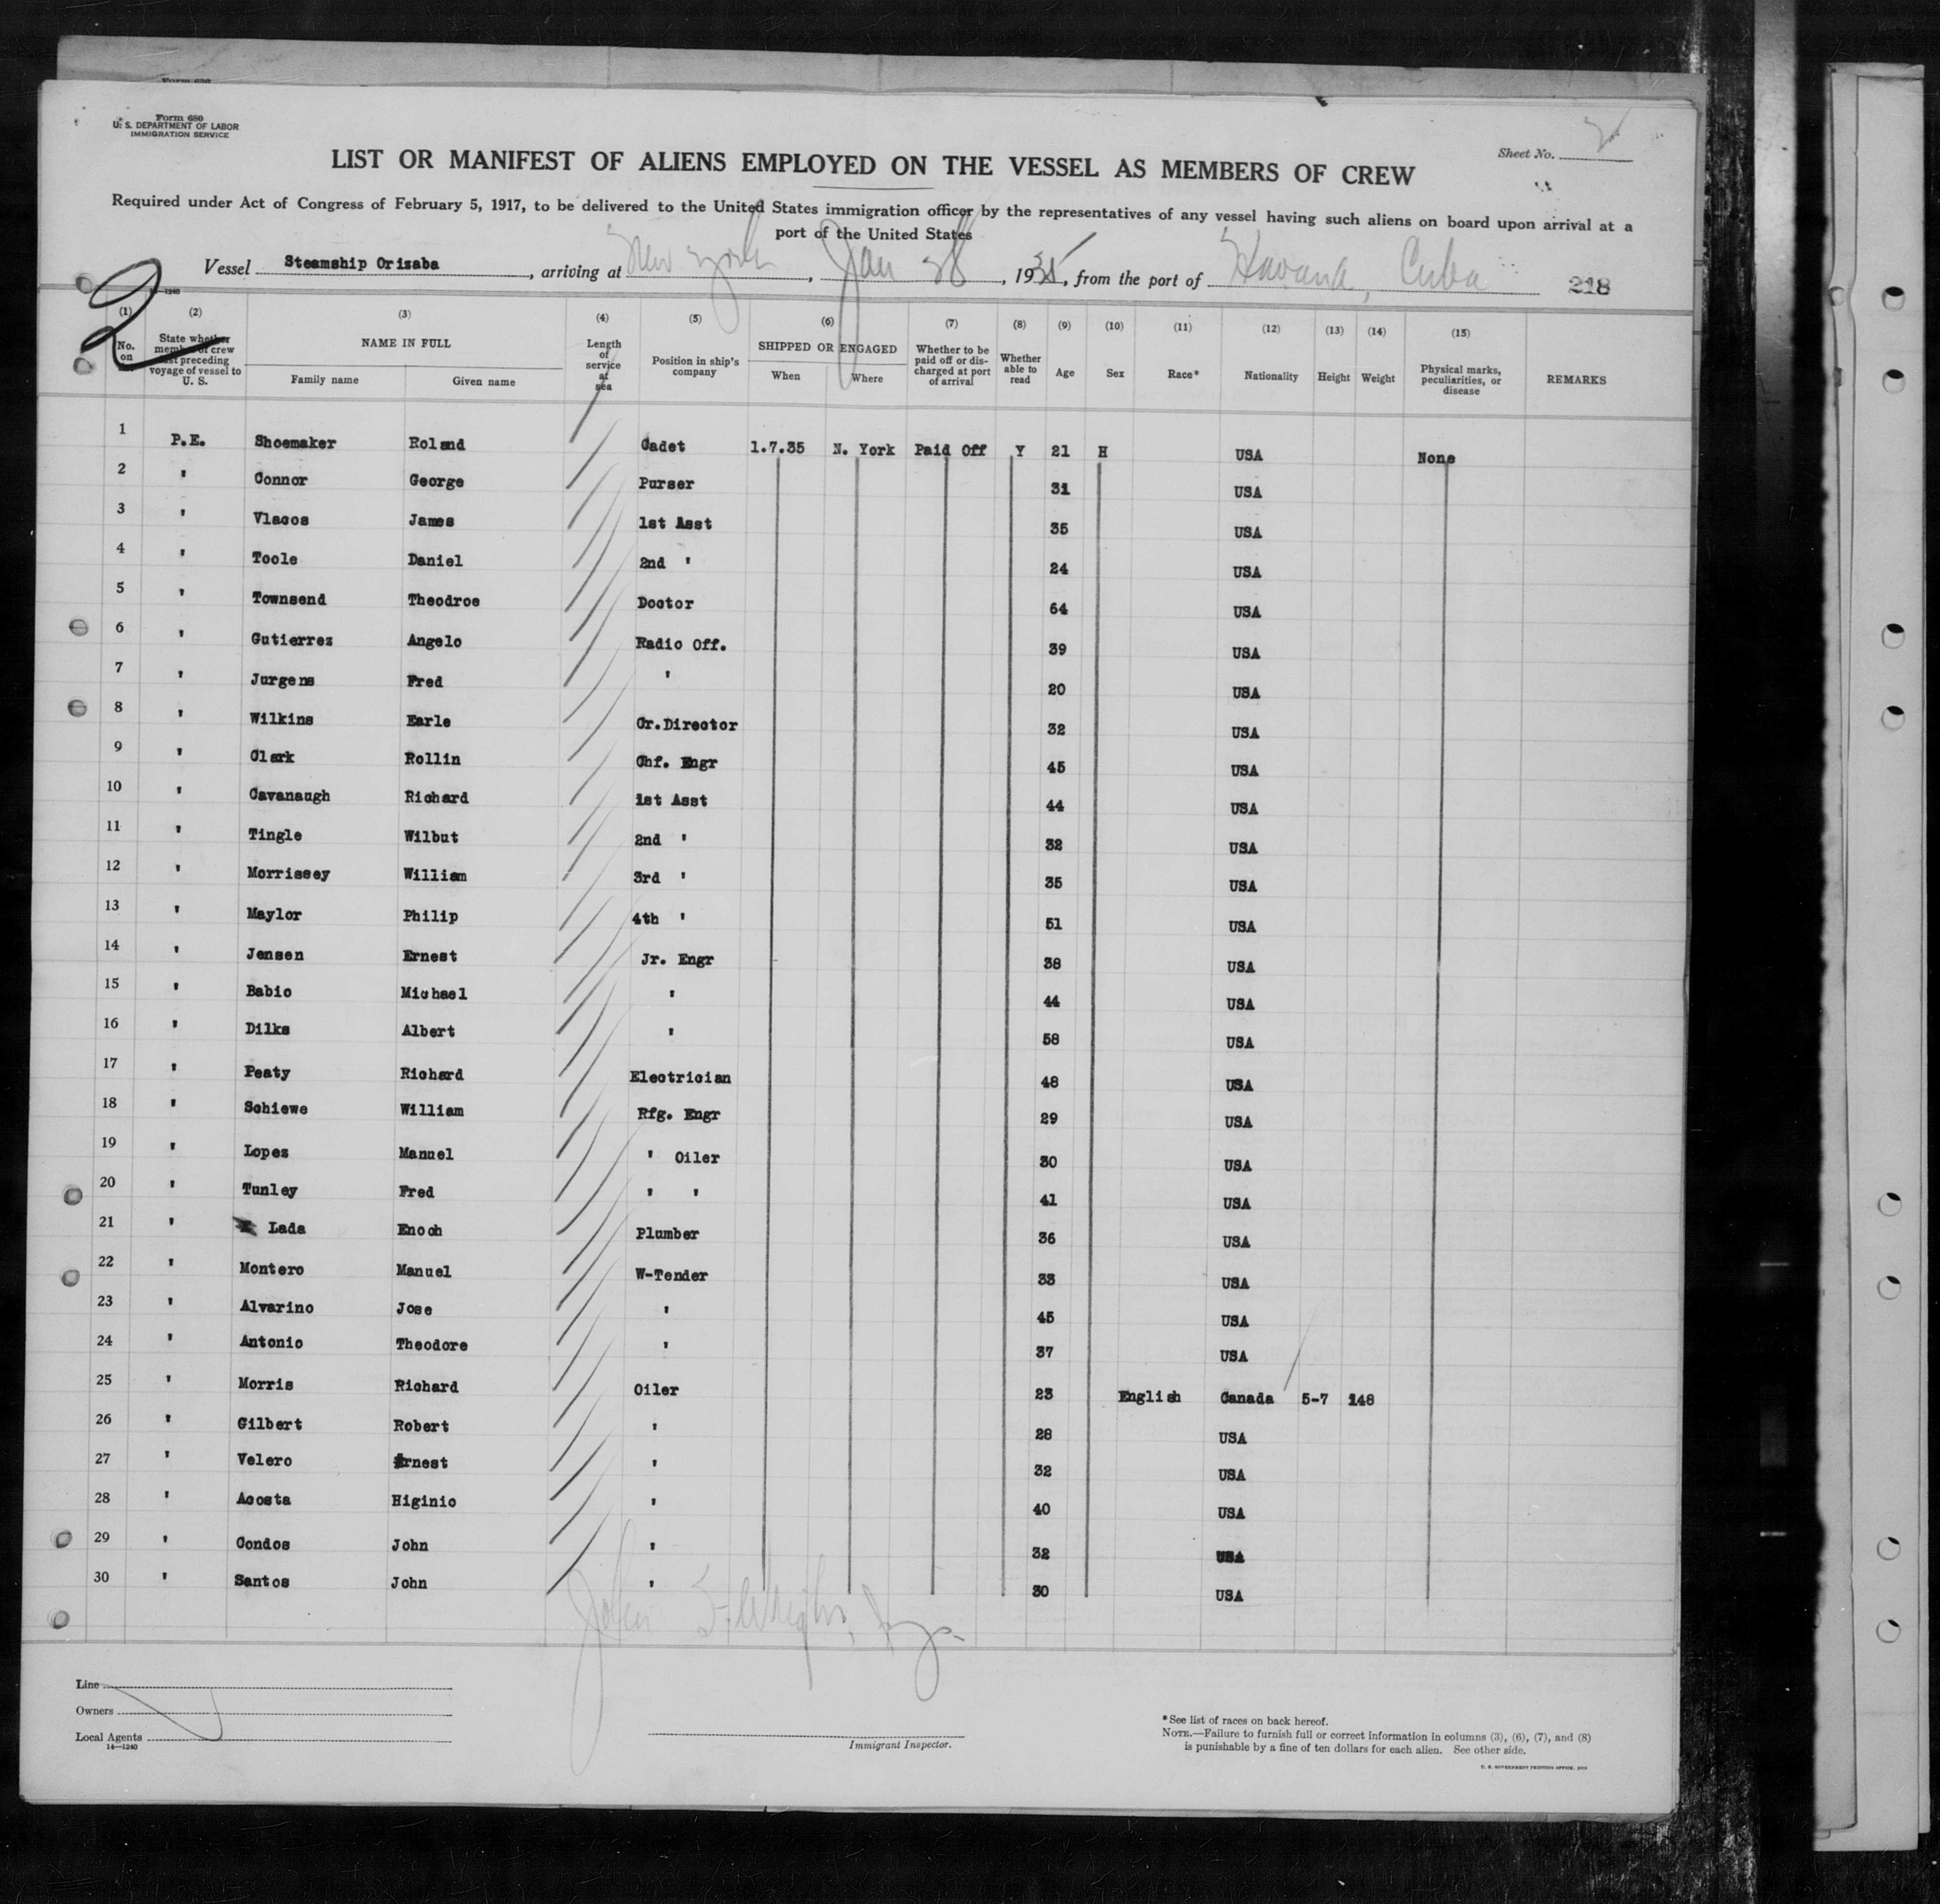 Form 680
U. S. DEPARTMENT OF LABOR
IMMIGRATION SERVICE
Sheet No.
LIST OR MANIFEST OF ALIENS EMPLOYED ON THE VESSEL AS MEMBERS OF CREW
Required under Act of Congress of February 5, 1917, to be delivered to the United States immigration officer by the representatives of any vessel having such aliens on board upon arrival at a
port of the United States
Vessel Steamship Orizaba, arriving at New York, Jan 28, 1935, from the port of Havana, Cuba 218
2
(1) (2) (3) (4) (5) (6) (7) (8) (9) (10) (11) (12) (13) (14) (15)
No. on State whether member of crew last preceding voyage of vessel to U. S. NAME IN FULL Family name Given name Length of service at sea Position in ship's company SHIPPED OR ENGAGED When Where Whether to be paid off or discharged at port of arrival Whether able to read Age Sex Race* Nationality Height Weight Physical marks, peculiarities, or disease REMARKS
1 P.E. Shoemaker Roland Cadet 1.7.35 N. York Paid Off Y 21 H USA None
2 " Connor George Purser 31 USA
3 " Vlacos James 1st Asst 35 USA
4 " Toole Daniel 2nd ' 24 USA
5 " Townsend Theodroe Doctor 64 USA
6 " Gutierrez Angelo Radio Off. 39 USA
7 " Jurgens Fred ' 20 USA
8 " Wilkins Earle Cr.Director 32 USA
9 " Clark Rollin Chf. Engr 45 USA
10 " Cavanaugh Richard 1st Asst 44 USA
11 " Tingle Wilbut 2nd ' 32 USA
12 " Morrissey William 3rd ' 35 USA
13 " Maylor Philip 4th ' 51 USA
14 " Jensen Ernest Jr. Engr 38 USA
15 " Babio Michael ' 44 USA
16 " Dilks Albert ' 58 USA
17 " Peaty Richard Electrician 48 USA
18 " Schiewe William Rfg. Engr 29 USA
19 " Lopez Manuel ' Oiler 30 USA
20 " Tunley Fred ' ' 41 USA
21 " Lada Enoch Plumber 36 USA
22 " Montero Manuel W-Tender 33 USA
23 " Alvarino Jose ' 45 USA
24 " Antonio Theodore ' 37 USA
25 " Morris Richard Oiler 23 English Canada 5-7 148
26 " Gilbert Robert ' 28 USA
27 " Velero Ernest ' 32 USA
28 " Acosta Higinio ' 40 USA
29 " Condos John ' 32 USA
30 " Santos John ' 30 USA
Line
Owners
Local Agents
14—1240
Immigrant Inspector.
*See list of races on back hereof.
NOTE.—Failure to furnish full or correct information in columns (3), (6), (7), and (8)
is punishable by a fine of ten dollars for each alien. See other side.